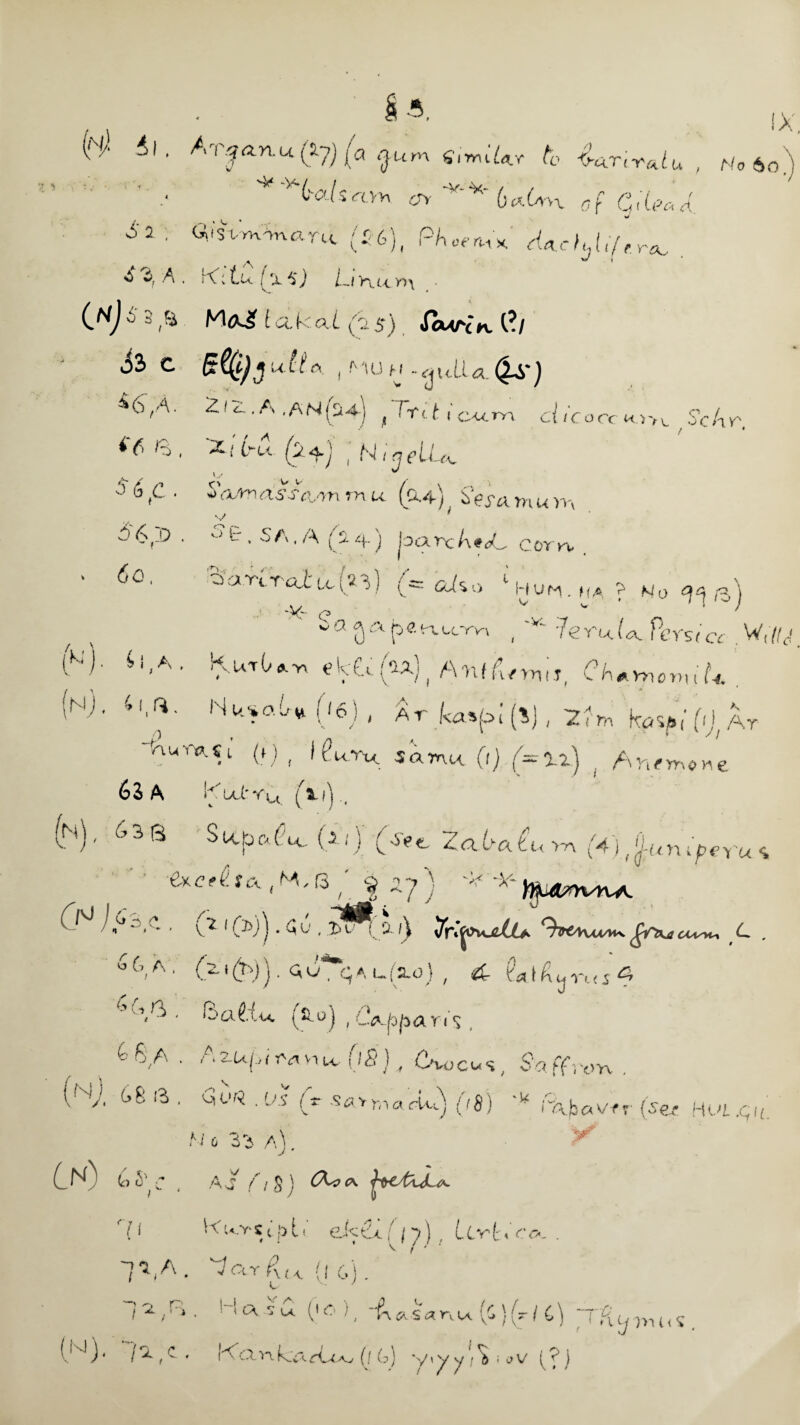 § 5. IX.
(N) 51. Arganu (27) (a gum similar to barîratu, No 60)
**balsam or ** balm of Gilead
52. Gišimmaru (26), Phoenix dactylifera
53, A. Kitû (25) Linum
(N) 53, B Maš lakal (25). (?)
53 C gulla, MUH-gulla (25)
56, A. ZIZ.A.AN (24), Triticum dicoccum, Schr.
56 B, Zibû (24), Nigella
56, C. Šamaššammu (24), Sesamum
56, D. ŠE.SA.A (24) parched corn.
60. Barîratu (23) (= also HUM.HA? No 99 B)
* Sagapenum, * Ferula Persica Willd
(N). 61, A. Kurban ekli (22), Anthemis, Chamomile.
(N). 61, B. Nuṣabu (16), Ar kaspi (3), Zîm kaspi (1), Ar
huraṣi (1), Iluru sâmu (1) (= 22), Anemone
63 A Kutru (21).
(N). 63 B Supalu (21) (See Zabalum (4), Juniperus
excelsa, M, B, § 27)
(N) 63, C. (21 (D)). GÚ. (21) L.
66, A. (21 (D)). GÚ GAL (20), Lathyrus
66, B. Baltu (20), Capparis,
68, A. Azupiranu (18), Crocus, Saffron.
(N), 68 B. GUR.UŠ (= šarmadu) (18) * Papaver (See HUL.GIL
No 33 A).
(N) 68, C. AŠ (18) foetida
71 Kurṣipti ekli (17), Urtica.
72, A. Harhu (16).
72, B. Hašû (10), hašanu (6) (= 16) Thymus.
(N). 72, C. Kankadu (16) (?)